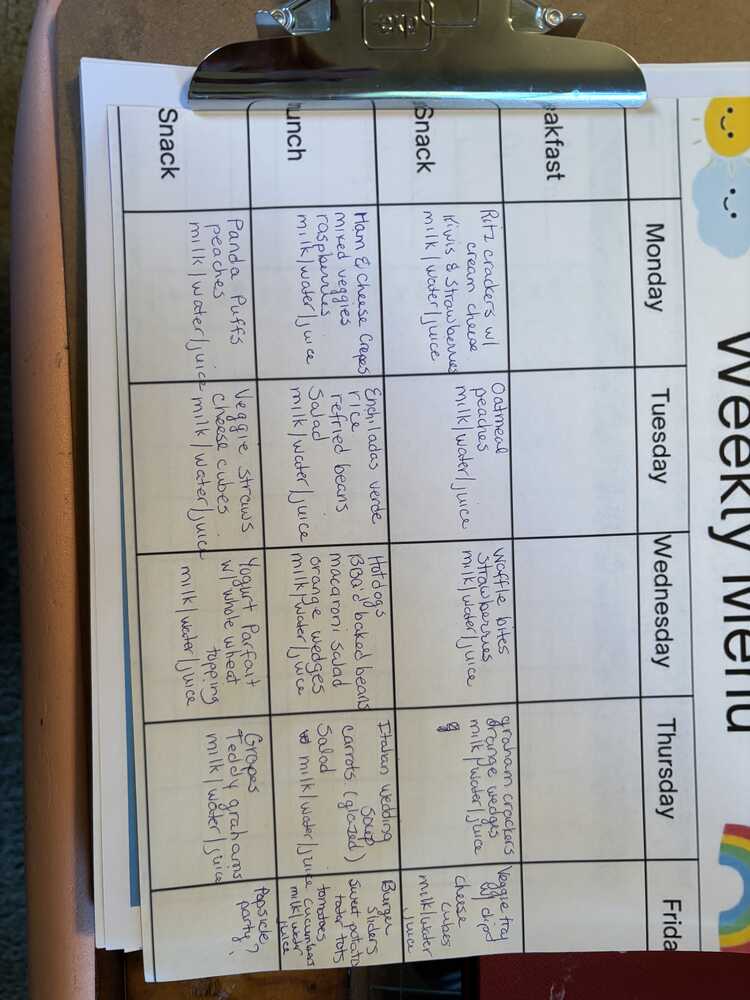 Weekly Menu
Monday
Tuesday
Wednesday
Thursday
Frida
eakfast
Snack
Ritz crackers w/
cream cheese
Kiwis & strawberries
milk/water/juice
Oatmeal
peaches
milk/water/juice
Waffle bites
Strawberries
milk/water/juice
graham crackers
orange wedges
milk/water/juice
Veggie tray
dip
cheese
cubes
milk/water
juice
unch
Ham & Cheese Crepes
mixed veggies
raspberries
milk/water/juice
Enchiladas verde
rice
refried beans
Salad
milk/water/juice
Hotdogs
BBQ'd baked beans
macaroni salad
orange wedges
milk/water/juice
Italian wedding
Soup
carrots (glazed)
Salad
milk/water/juice
Burger
Sliders
Sweet potato
tater tots
tomatoes
cucumbers
milk/water
juice
Snack
Panda Puffs
peaches
milk/water/juice
Veggie Straws
cheese cubes
milk/water/juice
Yogurt Parfait
w/ whole wheat
topping
milk/water/juice
Grapes
Teddy grahams
milk/water/juice
Popsicle
party?